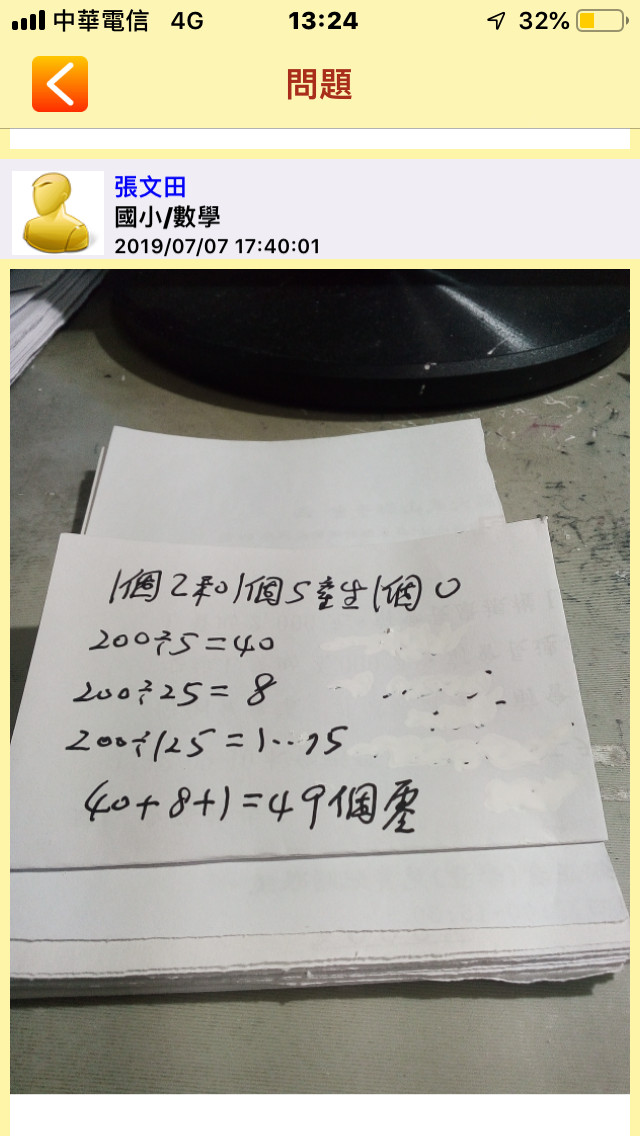 中華電信 4G 13:24 32%
問題
張文田
國小/數學
2019/07/07 17:40:01
1個2和1個5產生1個0
200÷5=40
200÷25=8
200÷125=1...75
40+8+1=49個零